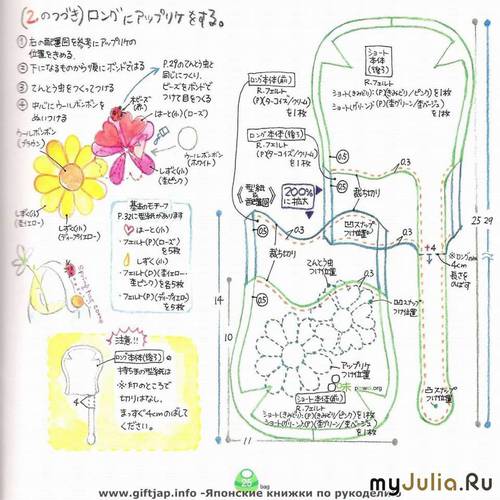 (2.のつづき)ロングにアップリケをする。
① 右の配置図を参考にアップリケの
位置をきめる。
② 下になるものから順にボンドではる
③ てんとう虫をつくってつける
④ 中心にウールボンボンを
ぬいつける
P.29のてんとう虫と
同じにつくり、
ビーズをボンドで
つけて目をつくる
丸ビーズ
(赤)
はーと(小)(ローズ)
ウールボンボン
(ブラウン)
ウールボンボン
(ホワイト)
しずく(小)
(杢ピンク)
しずく(小)
(杢イエロー)
しずく(小)
(ディープイエロー)
基本のモチーフ
P.32に型紙があります
はーと(小)
・フェルト(P)(ローズ)
を5枚
しずく(小)
・フェルト(D)(杢イエロー・
杢ピンク)を各5枚
・フェルト(P)(ディープイエロー)
を5枚
注意!!
ロング本体(後ろ)
持ち手の型紙は
※印のところで
切りはなし、
まっすぐ4cmのばして
ください。
4
ロング本体(前)
R.フェルト
(P)(ターコイズ/クリーム)
を1枚
ロング本体(後ろ)
R.フェルト
(P)(ターコイズ/クリーム)
を1枚
《型紙&配置図》
200%
に拡大
ショート
本体
(後ろ)
R.フェルト
ショート(きみどり):(P)(きみどり/ピンク)を1枚
ショート(グリーン):(P)(杢グリーン/杢ベージュ)
を1枚
0.5
0.3
裁ち切り
凹スナップ
つけ位置
+4
※ロングのみ
4cm
長さを
のばす
25
29
てんとう虫
つけ位置
0.3
裁ち切り
凹スナップ
つけ位置
アップリケ
つけ位置
凸スナップ
つけ位置
14
10
11
ショート本体(前)
R.フェルト
ショート(きみどり):(P)(きみどり/ピンク)を1枚
ショート(グリーン):(P)(杢グリーン/杢ベージュ)
を1枚
25
bag
www.giftjap.info -Японские книжки по рукоделию
myJulia.Ru